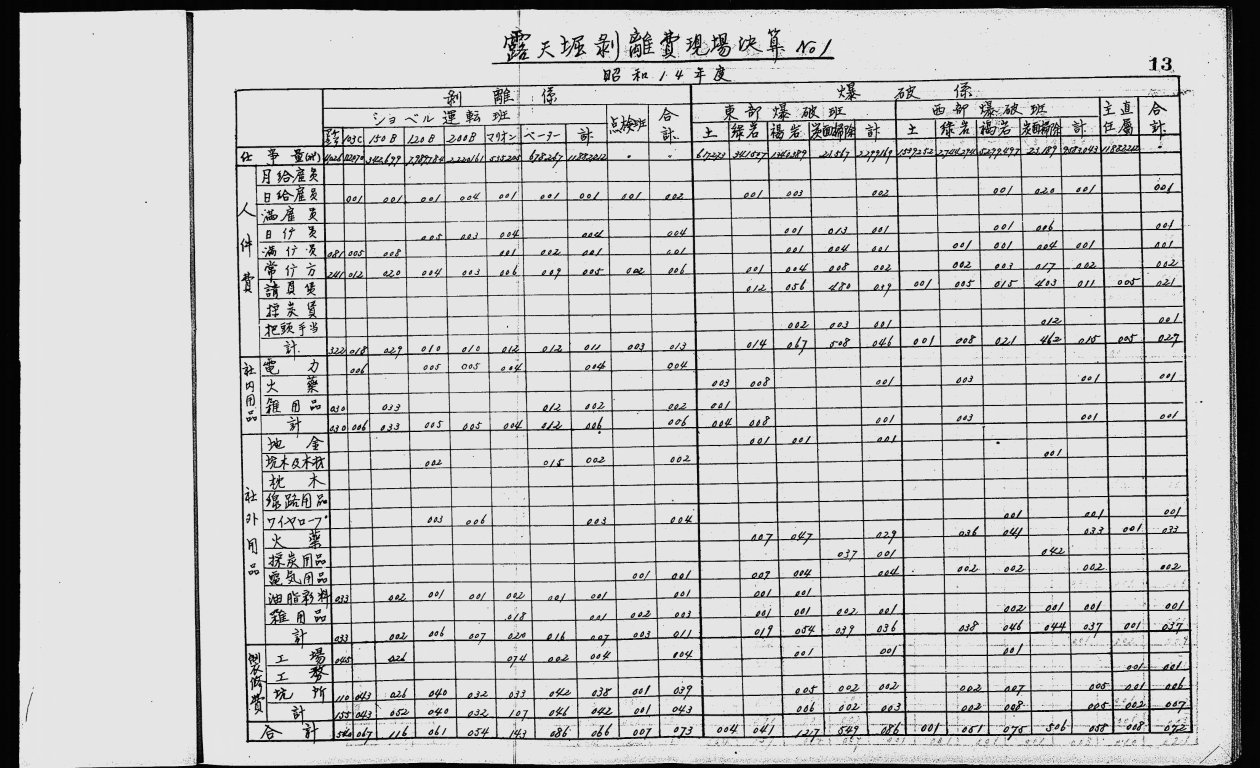 露天堀剥離費現場決算 No1
昭和14年度
13
剥離係 爆破係
ショベル運転班 点検班 合計 東部爆破班 西部爆破班 主直任属 合計
103C 150B 120B 200B マリオン ベーター 計 土 緑岩 褐岩 炭面掃除 計 土 緑岩 褐岩 炭面掃除 計
仕事量(m³)
人件費
月給雇員
日給雇員 001 001 001 004 001 001 001 001 002 001 003 002 001 020 001 001
満雇員
日傭員 005 003 004 004 004 001 013 001 001 006 001
満傭員 081 005 008 001 002 001 001 001 004 001 001 001 004 001 001
常傭方 241 012 020 004 003 006 009 005 002 006 001 004 008 002 002 003 017 002 002
請負賃 012 056 480 039 001 005 015 403 011 005 021
採炭賃
把頭手当 002 003 001 012 001
計 322 018 029 010 010 012 012 011 003 013 014 067 508 046 001 008 021 462 015 005 027
社内用品
電力 006 005 005 004 004 004
火薬 003 008 001 003 001 001
雑用品 030 033 012 002 002 001
計 030 006 033 005 005 004 012 006 006 004 008 001 003 001 001
社外用品
地金 001 001 001
坑木及木材 002 015 002 002 001
枕木
線路用品
ワイヤロープ 003 006 003 004 001 001 001
火薬 007 047 029 036 041 033 001 033
採炭用品 037 001 042
電気用品 001 001 009 004 004 002 002 002 002
油脂彩料 033 002 001 001 002 001 001 001 001 001
雑用品 018 001 002 003 001 001 002 001 002 001 001 001
計 033 002 006 007 020 016 007 003 011 019 054 039 036 038 046 044 037 001 037
製作修費
工場 045 026 074 002 004 004 001 001 001
工務 001 001
坑所 110 043 026 040 032 033 042 038 001 039 005 002 002 002 007 005 001 006
計 155 043 052 040 032 107 046 042 001 043 006 002 003 002 008 005 002 007
合計 540 067 116 061 054 143 086 066 007 073 004 041 127 549 086 001 051 075 506 058 008 072